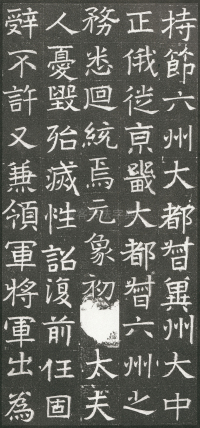 持節六州大都督冀州大中
正俄徙京畿大都督六州之
務悉迴統焉元象初太夫
人憂毀殆滅性詔復前任固
辝不許又兼領軍將軍出為